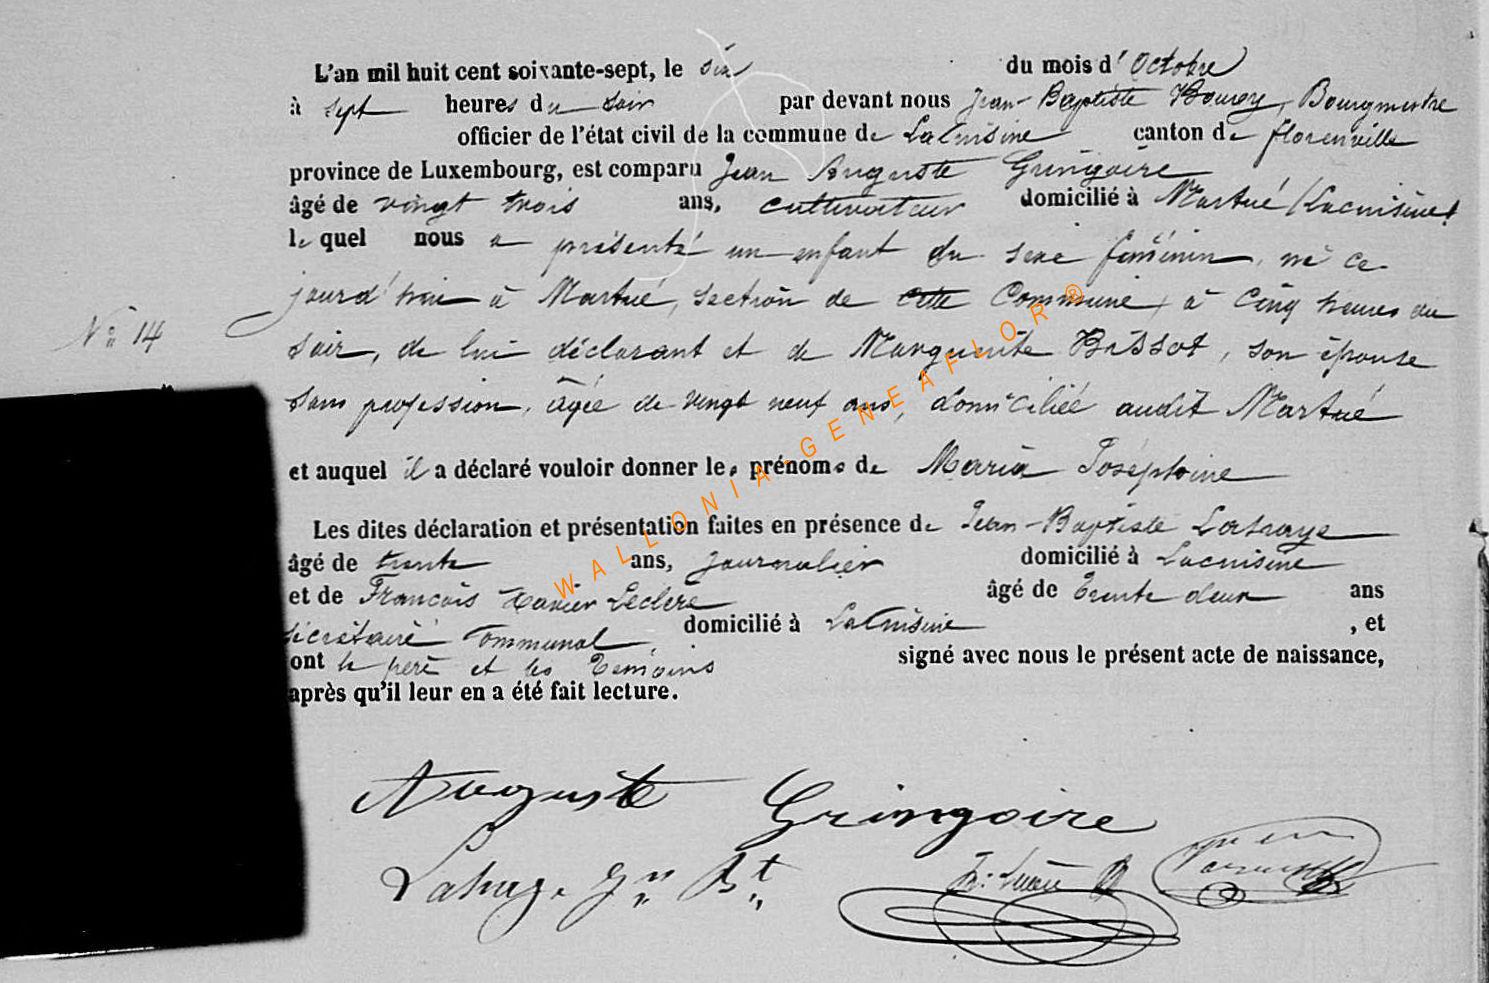 L'an mil huit cent soixante-sept, le six du mois d'Octobre
à sept heures du soir par devant nous Jean-Baptiste Bourgmestre
officier de l'état civil de la commune de LaCuisine canton de florenville
province de Luxembourg, est comparu Jean Auguste Gringoire
âgé de vingt trois ans, cultivateur domicilié à Martué (Lacuisine)
lequel nous a présenté un enfant du sexe féminin, né ce
jourd'hui à Martué, section de cette Commune, à cinq heures du
N° 14
soir, de lui déclarant et de Marguerite Bissot, son épouse
sans profession, âgée de vingt neuf ans, domiciliée audit Martué
et auquel il a déclaré vouloir donner les prénoms de Maria Joséphine
Les dites déclaration et présentation faites en présence de Jean-Baptiste Lahaye
âgé de trente ans, journalier domicilié à Lacuisine
et de François Xavier Leclère âgé de trente deux ans
secrétaire Communal, domicilié à LaCuisine , et
ont le père et les témoins signé avec nous le présent acte de naissance,
après qu'il leur en a été fait lecture.
Auguste Gringoire
Lahaye Jn Bt
WALLONIA-GENEAFLOR®